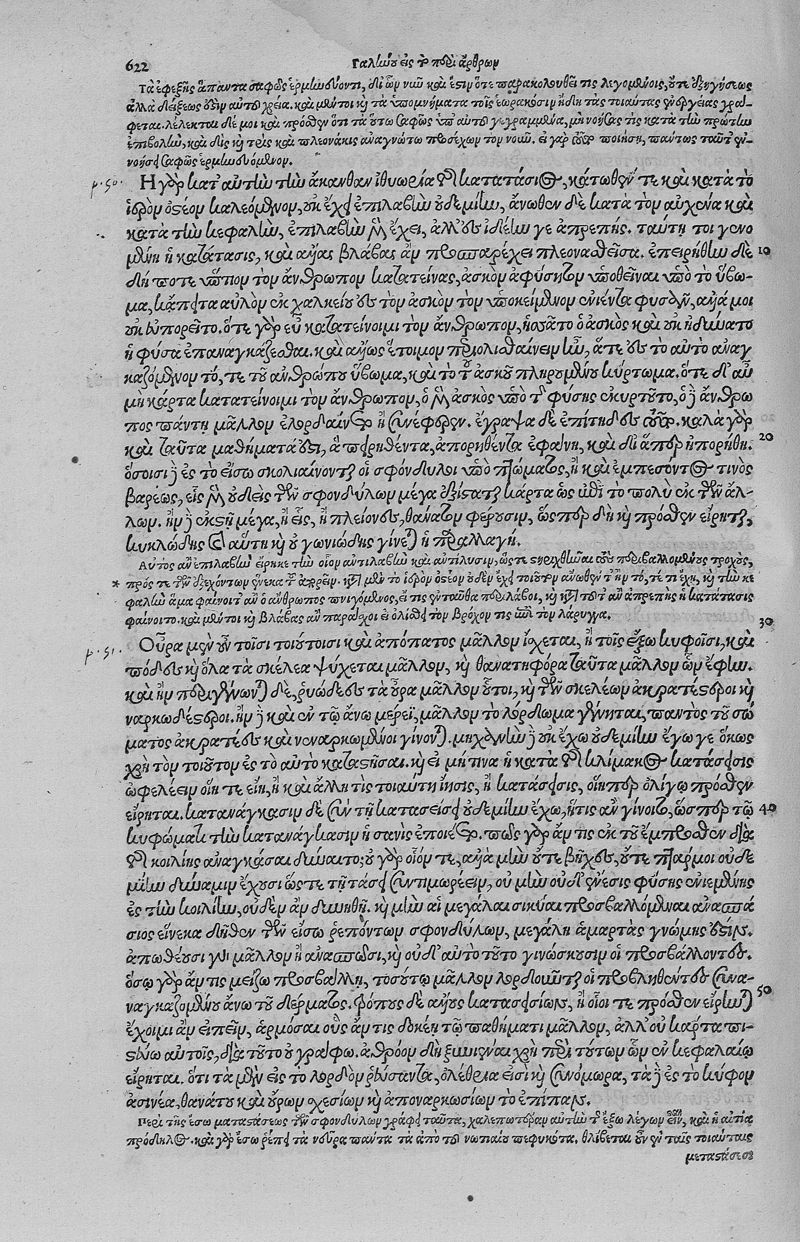 622 Γαληνοῦ εἰς τὸ περὶ ἄρθρων
Τὰ ἐφεξῆς ἅπαντα σαφῶς ἑρμηνεύοντι, δι' ὧν νῦν καὶ ἔστιν ὅτε παρακολουθεῖ τις λεγομένοις, οὔτε ἐξηγήσεως
ἀλλὰ δείξεως οὐδὲν αὐτῷ χρεία. καὶ μέντοι καὶ τὰ ὑπομνήματα τοῖς ἑωρακόσιν ἤδη τὰς τοιαύτας ἐνεργείας γρά-
φεται. λέλεκται δέ μοι καὶ πρόσθεν ὅτι τὰ οὕτω σαφῶς ὑπ' αὐτοῦ γεγραμμένα, μὴ νοήσας τις κατὰ τὴν πρώτην
ἐπιβολὴν, καὶ δὶς καὶ τρὶς καὶ πλεονάκις ἀναγνώτω προσέχων τὸν νοῦν. εἰ γὰρ οὕτω ποιήσῃ, πάντως ταῦτ' ἐν-
νοήσει σαφῶς ἑρμηνευόμενον.
p. 50. Ἡ γὰρ κατ' αὐτὴν τὴν ἄκανθαν ἰθυωρίη τῆς κατατάσιος, κάτωθέν τε καὶ κατὰ τὸ
ἱερὸν ὀστέον καλεόμενον, οὐκ ἔχει ἐπιλαβὴν οὐδεμίην, ἄνωθεν δὲ κατὰ τὸν αὐχένα καὶ
κατὰ τὴν κεφαλὴν, ἐπιλαβὴν μὲν ἔχει, ἀλλ' ἐσιδέειν γε ἀπρεπής. ταύτῃ τοι γενο
μένη ἡ κατάτασις, καὶ ἄλλας βλάβας ἂν προσπαρέχει πλεονασθεῖσα. ἐπειρήθην δὲ 10
δή ποτε ὕπτιον τὸν ἄνθρωπον κατατείνας, ἀσκὸν ἀφύσητον ὑποθεῖναι ὑπὸ τὸ ὕβω-
μα, κἄπειτα αὐλῷ ἐκ χαλκείου ἐς τὸν ἀσκὸν τὸν ὑποκείμενον ἐνιέναι φύσαν, ἀλλά μοι
οὐκ εὐπορεῖτο. ὅτε γὰρ εὖ κατατείνοιμι τὸν ἄνθρωπον, ἡσσᾶτο ὁ ἀσκὸς καὶ οὐκ ἠδύνατο
ἡ φύσα ἐπαναγκάζεσθαι. καὶ ἄλλως ἕτοιμον περιολισθαίνειν ἦν, ἅτε ἐς τὸ αὐτὸ ἀναγ
καζόμενον τό, τε τοῦ ἀνθρώπου ὕβωμα, καὶ τὸ τοῦ ἀσκοῦ πληρουμένου κύρτωμα. ὅτε δ' αὖ
μὴ κάρτα κατατείνοιμι τὸν ἄνθρωπον, ὁ μὲν ἀσκὸς ὑπὸ τῆς φύσης ἐκυρτοῦτο, ὁ δὲ ἄνθρω
πος πάντη μᾶλλον ἐλορδαίνετο ἢ συνέφερεν. ἔγραψα δὲ ἐπίτηδες τοῦτο. καλὰ γὰρ
καὶ ταῦτα μαθήματά ἐστι, ἃ πειρηθέντα, ἀπορηθέντα ἐφάνη, καὶ δι' ἅπερ ἠπορήθη. 20
ὁκόσοισι δὲ ἐς τὸ εἴσω σκολιαίνονται οἱ σφόνδυλοι ὑπὸ πτώματος, ἢ καὶ ἐμπεσόντος τινὸς
βαρέως, εἷς μὲν οὐδεὶς τῶν σφονδύλων μέγα ἐξίσταται κάρτα ὡς ἐπὶ τὸ πολὺ ἐκ τῶν ἄλ-
λων. ἢν δὲ ἐκστῇ μέγα, ἢ εἷς, ἢ πλείονες, θάνατον φέρουσιν, ὥσπερ δὴ καὶ πρόσθεν εἴρηται,
κυκλώδης δὲ αὕτη καὶ οὐ γωνιώδης γίνεται ἡ παραλλαγή.
* πρὸς τε τῶν ἐξεχόντων ἕνεκα τοῦ ἄρχειν. κατὰ μὲν τὸ ἱερὸν ὀστέον οὐδὲν ἔχει τοιοῦτον ἄνωθεν
φαλὴν ἅμα φαίνοιτ' ἂν ὁ ἄνθρωπος πνιγόμενος, εἴ τις ἐνταῦθα περιλάβοι, καὶ κατὰ τοῦτ' ἂν ἀπρεπὴς ἡ κατάτασις
φαίνοιτο. καὶ μέντοι καὶ βλάβας ἂν παράσχοι εἰ ὀλίσθοι τὸν βρόχον τις ἐπὶ τὸν λάρυγγα. 30
p. 51. Οὖρα μὲν οὖν τοῖσι τοιούτοισι καὶ ἀπόπατος μᾶλλον ἴσχεται, ἢ τοῖς ἔξω κυφοῖσι, καὶ
πόδες καὶ ὅλα τὰ σκέλεα ψύχεται μᾶλλον, καὶ θανατηφόρα ταῦτα μᾶλλον ὧν ἔφην.
καὶ ἢν περιγένωνται δὲ, ῥυώδεες τὰ οὖρα μᾶλλον οὗτοι, καὶ τῶν σκελέων ἀκρατέστεροι καὶ
ναρκωδέστεροι. ἢν δὲ καὶ ἐν τῷ ἄνω μέρεϊ, μᾶλλον τὸ λόρδωμα γένηται, παντὸς τοῦ σώ
ματος ἀκρατέες καὶ νεναρκωμένοι γίνονται. μηχανὴν δὲ οὐκ ἔχω οὐδεμίην ἔγωγε ὅκως
χρὴ τὸν τοιοῦτον ἐς τὸ αὐτὸ καταστῆσαι. καὶ εἰ μή τινα ἡ κατὰ τῆς κλίμακος κατάσεισις
ὠφελέειν οἵη τε εἴη, ἢ καὶ ἄλλη τις τοιαύτη ἴησις, ἢ κατάσεισις, οἵηπερ ὀλίγῳ πρόσθεν
εἴρηται. κατανάγκασιν δὲ σὺν τῇ κατασείσει οὐδεμίην ἔχω, ἥτις ἂν γίνοιτο, ὥσπερ τῷ 40
κυφώματι τὴν κατανάγκασιν ἡ σανὶς ἐποιέετο. πῶς γὰρ ἄν τις ἐκ τοῦ ἔμπροσθεν διὰ
τῆς κοιλίης ἀναγκάσαι δύναιτο; οὐ γὰρ οἷόν τε, ἀλλὰ μὴν οὔτε βῆχες, οὔτε πταρμοὶ οὐδε
μίην δύναμιν ἔχουσι ὥστε τῇ τάσει συντιμωρέειν, οὐ μὴν οὐδ' ἔνεσις φύσης ἐνιεμένης
ἐς τὴν κοιλίην, οὐδὲν ἂν δυνηθῇ. καὶ μὴν αἱ μεγάλαι σικύαι προσβαλλόμεναι ἀνασπά
σιος εἵνεκα δῆθεν τῶν εἴσω ῥεπόντων σφονδύλων, μεγάλη ἁμαρτὰς γνώμης ἐστίν.
ἀπωθέουσι γὰρ μᾶλλον ἢ ἀνασπῶσι, καὶ οὐδ' αὐτὸ τοῦτο γινώσκουσιν οἱ προσβάλλοντες.
ὅσῳ γὰρ ἄν τις μείζω προσβάλλῃ, τοσούτῳ μᾶλλον λορδοῦνται οἱ προσβληθέντες συνα-
ναγκαζομένου ἄνω τοῦ δέρματος. τρόπους δὲ ἄλλους κατασεισίων, ἢ οἷοί τε πρόσθεν εἴρηνται 50
ἔχοιμι ἂν εἰπεῖν, ἁρμόσαι οὓς ἄν τις δοκέῃ τῷ παθήματι μᾶλλον, ἀλλ' οὐ κάρτα πι-
στεύω αὐτοῖς, διὰ τοῦτο οὐ γράφω. ἀθρόον δὴ ξυνιέναι χρὴ περὶ τούτων ὧν ἐν κεφαλαίῳ
εἴρηται. ὅτι τὰ μὲν εἰς τὸ λορδὸν ῥέψαντα, ὀλέθριά εἰσι καὶ σινόμωρα, τὰ δὲ ἐς τὸ κύφον
ἀσινέα, θανάτου καὶ οὔρων σχεσίων καὶ ἀποναρκωσίων τὸ ἐπίπαν.
Περὶ τῆς ἔσω μεταστάσεως τῶν σφονδύλων γράφει ταῦτα, χαλεπωτέραν αὐτὴν τῆς ἔξω λέγων εἶναι, καὶ ἡ αἰτία
πρόδηλος. καὶ γὰρ ἔσω ῥέπει τὰ νεῦρα πάντα τὰ ἀπὸ τοῦ νωτιαίου πεφυκότα. θλίβεται οὖν ἐν ταῖς τοιαύταις
μεταστάσεσι